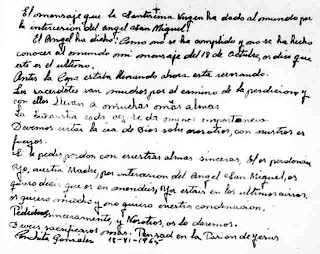 El mensaje que la Santísima Virgen ha dado al mundo por
la intercesión del Angel San Miguel.
El Angel ha dicho: Como no se ha cumplido y no se ha hecho
conocer al mundo mi mensaje del 18 de Octubre, os diré que
este es el último.
Antes la Copa estaba llenando ahora está rebosando.
Los sacerdotes van muchos por el camino de la perdición y
con ellos llevan a muchas más almas.
La Eucaristía cada vez se da menos importancia.
Debemos evitar la ira de Dios sobre nosotros, con nuestros es
fuerzos.
Si le pedís perdón con vuestras almas sinceras El os perdonará
Yo, vuestra Madre, por intercesión del Angel San Miguel, os
quiero decir que os enmendéis, Ya estáis en los últimos avisos,
os quiero mucho y no quiero vuestra condenación.
Pedidnos sinceramente, y Nosotros, os lo daremos.
Debéis sacrificaros más. Pensad en la Pasión de Jesús
Conchita Gonzalez 18-VI-1965